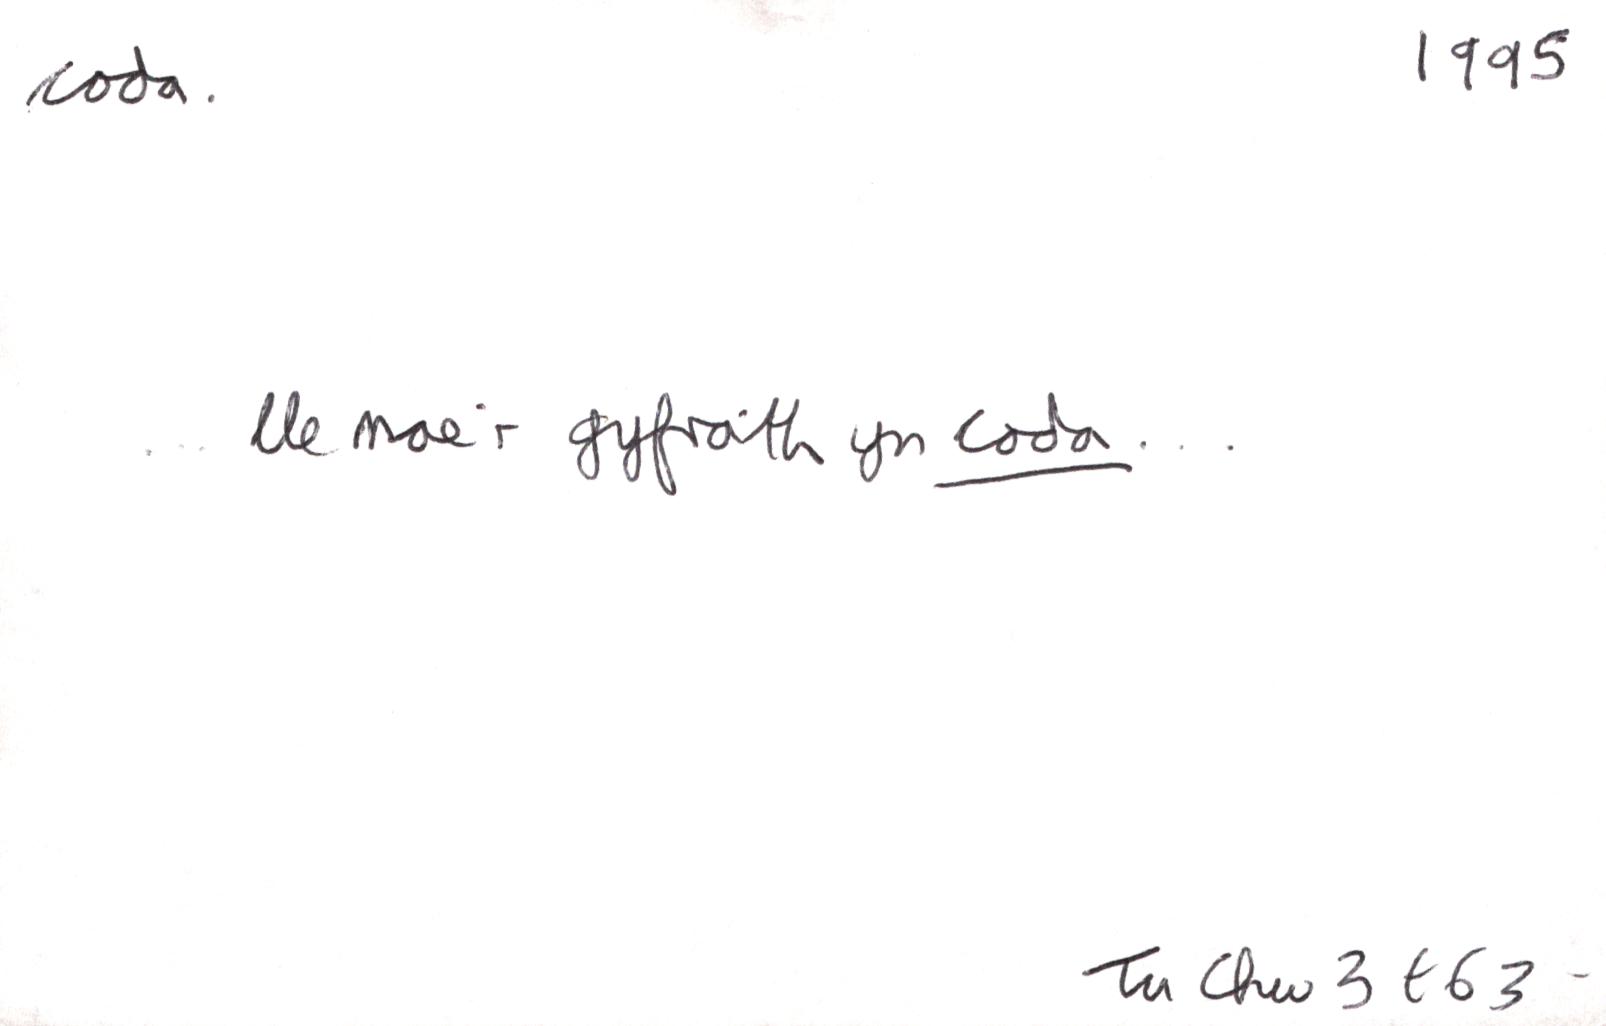 coda. 1995
... lle mae'r gyfraith yn coda ...
Tu Chw 3 t 63 -